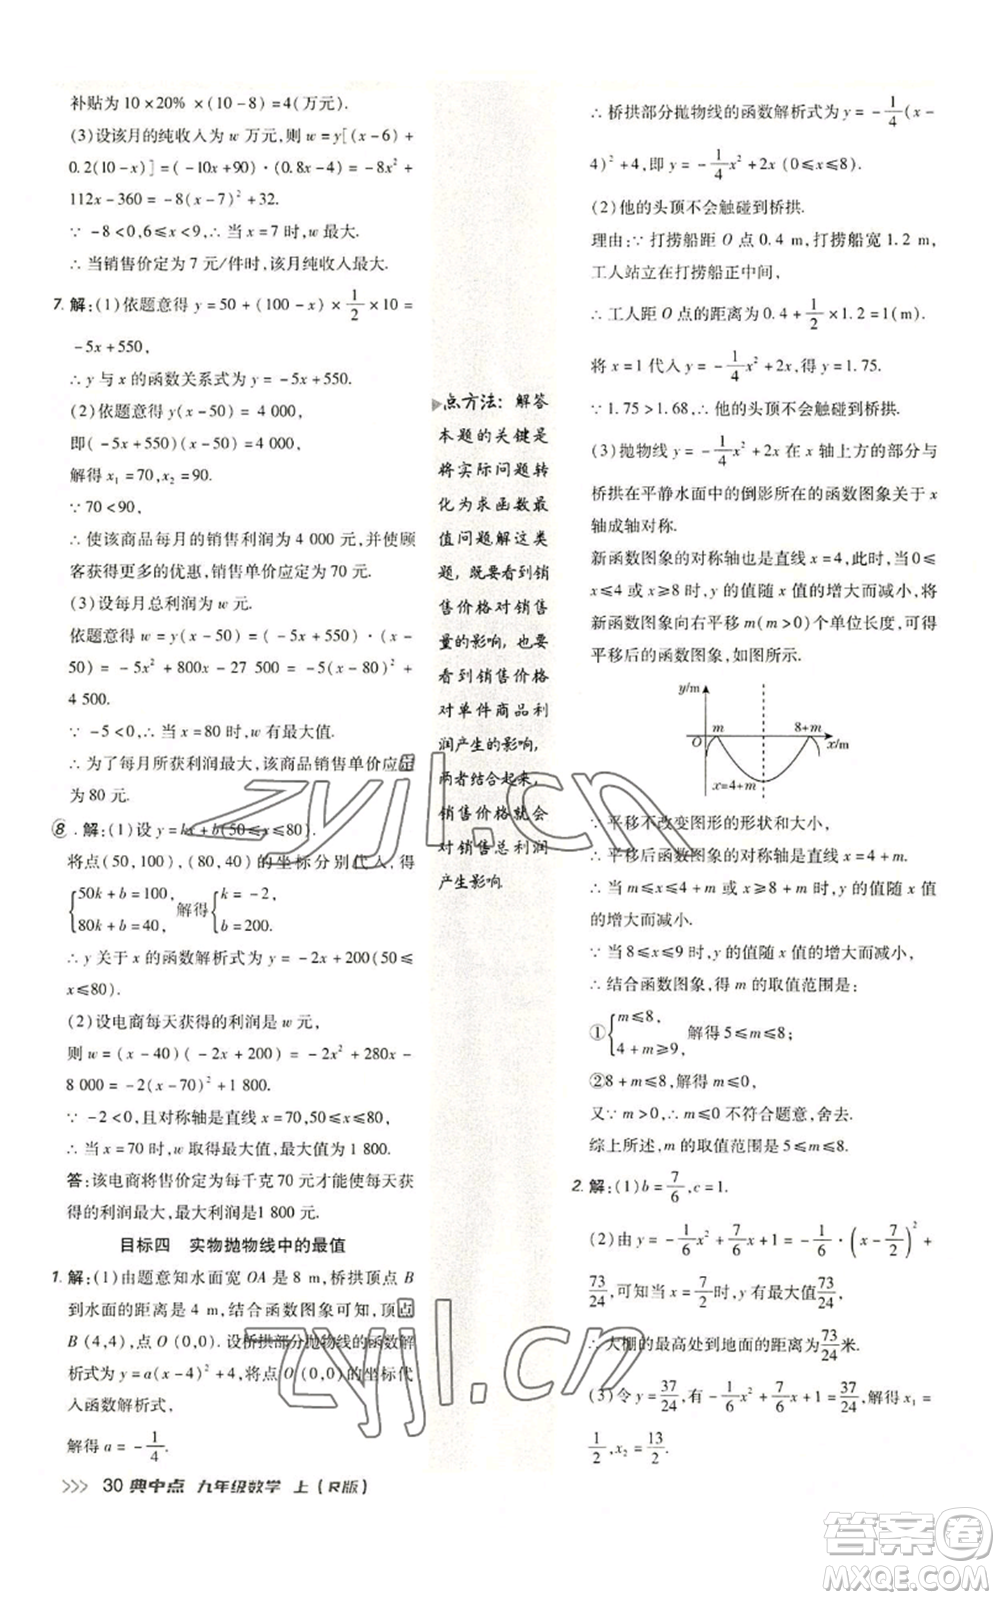 补贴为 10×20%×(10-8)=4(万元).
(3)设该月的纯收入为 w 万元,则 w=y[(x-6)+
0.2(10-x)]=(-10x+90)·(0.8x-4)=-8x²+
112x-360=-8(x-7)²+32.
∵ -8<0,6≤x<9,∴ 当 x=7 时,w 最大.
∴ 当销售价定为 7 元/件时,该月纯收入最大.
7. 解:(1)依题意得 y=50+(100-x)×1/2×10=
-5x+550,
∴ y 与 x 的函数关系式为 y=-5x+550.
(2)依题意得 y(x-50)=4 000,
即(-5x+550)(x-50)=4 000,
解得 x₁=70,x₂=90.
∵ 70<90,
∴ 使该商品每月的销售利润为 4 000 元,并使
顾客获得更多的优惠,销售单价应定为 70 元.
(3)设每月总利润为 w 元,
依题意得 w=y(x-50)=(-5x+550)·(x-
50)=-5x²+800x-27 500=-5(x-80)²+
4 500.
∵ -5<0,∴ 当 x=80 时,w 有最大值.
∴ 为了每月所获利润最大,该商品销售单价应定
为 80 元.
8. 解:(1)设 y=kx+b(50≤x≤80).
将点(50,100),(80,40)的坐标分别代入,得
{50k+b=100, 80k+b=40, 解得{k=-2, b=200.
∴ y 关于 x 的函数解析式为 y=-2x+200(50≤
x≤80).
(2)设电商每天获得的利润是 w 元,
则 w=(x-40)(-2x+200)=-2x²+280x-
8 000=-2(x-70)²+1 800.
∵ -2<0,且对称轴是直线 x=70,50≤x≤80,
∴ 当 x=70 时,w 取得最大值,最大值为 1 800.
答:该电商将售价定为每千克 70 元才能使每天获
得的利润最大,最大利润是1 800 元.
目标四 实物抛物线中的最值
1. 解:(1)由题意知水面宽 OA 是 8 m,桥拱顶点 B
到水面的距离是 4 m,结合函数图象可知,顶点
B (4,4),点 O (0,0).设桥拱部分抛物线的函数解
析式为 y=a(x-4)²+4,将点 O(0,0)的坐标代
入函数解析式,
解得 a=-1/4.
点方法:解答
本题的关键是
将实际问题转
化为求函数最
值问题解这类
题,既要看到销
售价格对销售
量的影响,也要
看到销售价格
对单件商品利
润产生的影响,
两者结合起来,
销售价格就会
对销售总利润
产生影响.
∴ 桥拱部分抛物线的函数解析式为 y=-1/4(x-
4)²+4,即 y=-1/4x²+2x (0≤x≤8).
(2)他的头顶不会触碰到桥拱.
理由:∵ 打捞船距 O 点 0.4 m,打捞船宽 1.2 m,
工人站立在打捞船正中间,
∴ 工人距 O 点的距离为 0.4+1/2×1.2=1(m).
将 x=1 代入 y=-1/4x²+2x,得 y=1.75.
∵ 1.75>1.68,∴ 他的头顶不会触碰到桥拱.
(3)抛物线 y=-1/4x²+2x 在 x 轴上方的部分与
桥拱在平静水面中的倒影所在的函数图象关于 x
轴成轴对称.
新函数图象的对称轴也是直线 x=4,此时,当 0≤
x≤4 或 x≥8 时,y 的值随 x 值的增大而减小,将
新函数图象向右平移 m(m>0)个单位长度,可得
平移后的函数图象,如图所示.
y/m
m 8+m
O x/m
x=4+m
∵ 平移不改变图形的形状和大小,
∴ 平移后函数图象的对称轴是直线 x=4+m,
∴ 当 m≤x≤4+m 或 x≥8+m 时,y 的值随 x 值
的增大而减小.
∵ 当 8≤x≤9 时,y 的值随 x 值的增大而减小,
∴ 结合函数图象,得 m 的取值范围是:
①{m≤8, 4+m≥9, 解得 5≤m≤8;
②8+m≤8,解得 m≤0,
又∵ m>0,∴ m≤0 不符合题意,舍去.
综上所述,m 的取值范围是 5≤m≤8.
2. 解:(1)b=7/6,c=1.
(2)由 y=-1/6x²+7/6x+1=-1/6(x-7/2)²+
73/24,可知当 x=7/2时,y 有最大值73/24,
∴ 大棚的最高处到地面的距离为73/24米.
(3)令 y=37/24,则有-1/6x²+7/6x+1=37/24,解得 x₁=
1/2,x₂=13/2.
>>> 30 典中点 九年级数学 上(R版)
zyjl.cn
zyjl.cn
答案圈
MXQE.COM